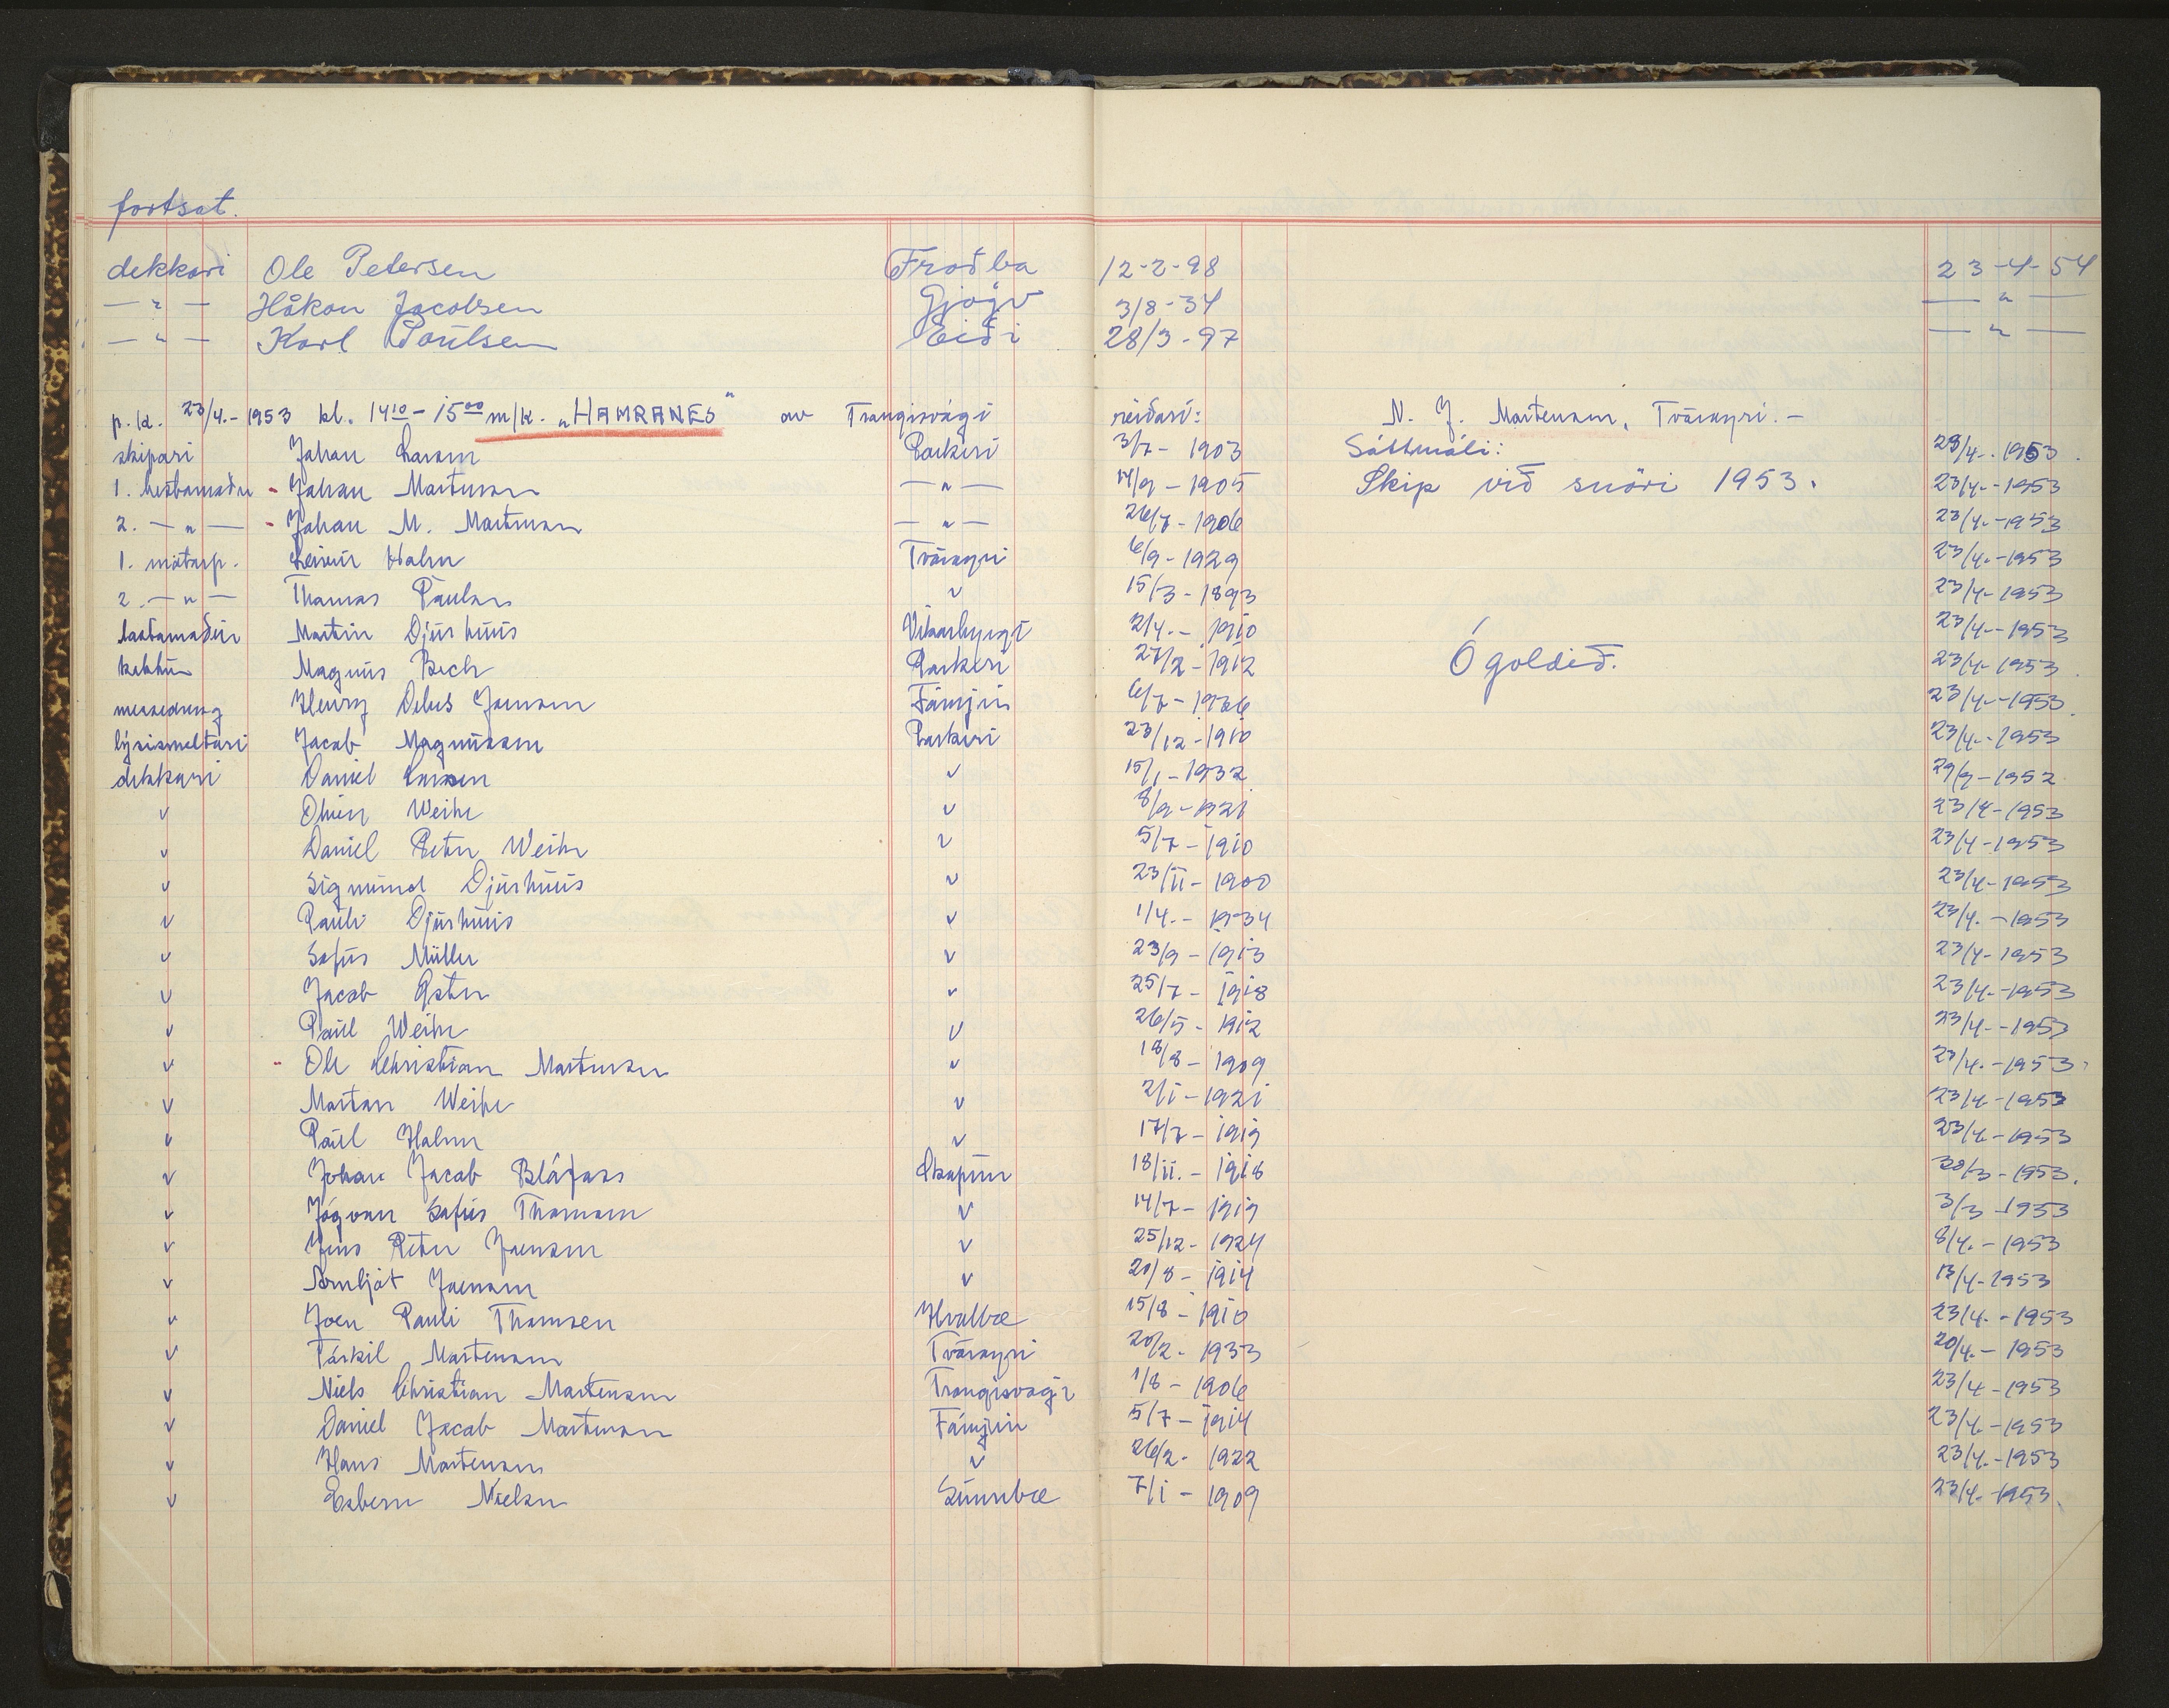 fortsat.
dekkari Ole Petersen Froðba 12-2-98 23-4-54
— " — Håkon Jacobsen Gjógv 3/8-34 — " —
— " — Karl Poulsen Eiði 28/3-97 — " —
p.k. 23/4.-1953 kl. 1410-1500 m/k. „HAMRANES" av Trongisvági reiðari: N. J. Mortensen, Tvöroyri. -
skipari Johan Larsen Porkeri 3/7-1903 Sáttmáli: 23/4.-1953.
1. bestamaður - Johan Mortensen — " — 14/9-1905 Skip við snöri 1953. 23/4.-1953
2. — " — - Johan M. Mortensen — " — 26/7-1906 23/4.-1953
1. mótorp. Leivur Holm Tvöroyri 6/9-1929 23/4.-1953
2. — " — Thomas Poulsen v 15/3-1893 23/4-1953
lastamaður Martin Djurhuus Vikarbyrgi 2/4.-1910 23/4.-1953
kokkur Magnus Bech Porkeri 27/2-1912 Ógoldið. 23/4-1953.
messedreng Henry Delus Joensen Fámjin 6/7-1936 23/4.-1953.
lýsismeltari Jacob Magnussen Porkeri 23/12-1910 23/4.-1953
dekkari Daniel Larsen v 15/1-1932 29/9-1952
v Oliver Weihe v 8/9-1921 23/4-1953
v Daniel Peter Weihe v 5/7-1910 23/4-1953
v Sigmund Djurhuus v 23/11-1900 23/4-1953
v Pauli Djurhuus v 1/4.-1934 23/4.-1953
v Sofus Müller v 23/9-1913 23/4-1953
v Jacob Øster v 25/7-1918 23/4.-1953
v Poul Weihe v 26/5-1912 23/4.-1953
v - Ole Christian Mortensen v 18/8-1909 23/4.-1953.
v Mortan Weihe v 2/1-1921 23/4-1953
v Poul Holm v 17/7-1919 23/4.-1953
v Johan Jacob Bláfoss Skopun 18/11.-1918 30/3-1953.
v Jógvan Sofus Thomsen v 14/7-1919 3/3-1953
v Jens Peter Joensen v 25/12-1924 8/4.-1953
v Arnljót Joensen v 20/8-1914 13/4-1953
v Joen Pauli Thomsen Hvalbæ 15/8-1910 23/4.-1953
v Tórkil Mortensen Tvöroyri 20/2.-1933 20/4.-1953
v Niels Christian Mortensen Trongisvági 1/8-1906 23/4-1953
v Daniel Jacob Mortensen Fámjin 5/7-1914 23/4.-1953
v Hans Mortensen v 26/2.-1922 23/4.-1953
v Esbern Nielsen Sumbæ 7/1-1909 23/4.-1953.